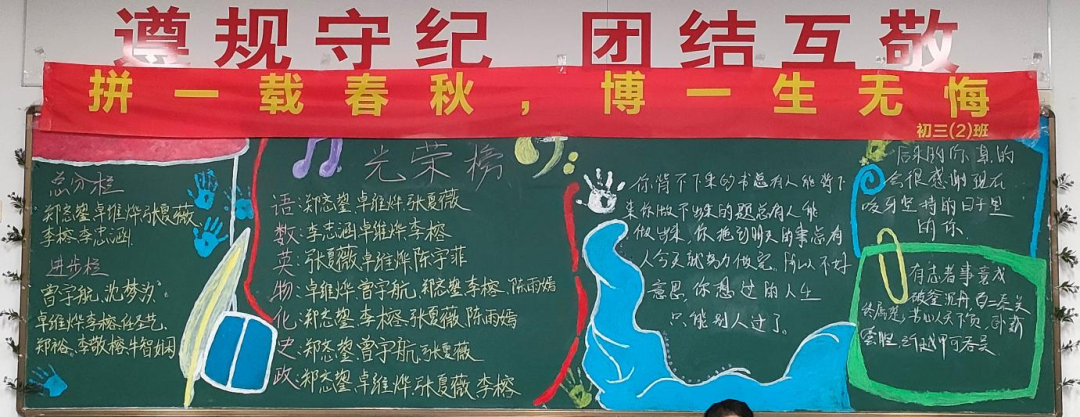 遵规守纪 团结互敬
拼一载春秋，博一生无悔
初三(2)班
总分栏
郑志鋆卓维烨张夏薇
李榕李志涵
进步栏
曾宇航、沈梦汐、
卓维烨李榕、任奎艺、
郑裕、李敬榕牛智娴
光荣榜
语:郑志鋆卓维烨张夏薇
数:李志涵卓维烨、李榕
英:张夏薇卓维烨陈宇菲
物:卓维烨、曾宇航、郑志鋆李榕、陈雨嫣
化:郑志鋆、李榕、张夏薇、陈雨嫣
史:郑志鋆、曾宇航、张夏薇
政:郑志鋆卓维烨、张夏薇、李榕
你背不下来的书总有人能背下
来你做不出来的题总有人能
做出来,你拖到明天的事总有
人今天就努力做完。所以不好
意思,你想过的人生
只能别人过了。
后来的你,真的
会很感谢现在
咬牙坚持的日子里
的你.
有志者事竟成
破釜沉舟,百二秦关
终属楚;苦心人天下负,卧薪
尝胆,三千越甲可吞吴